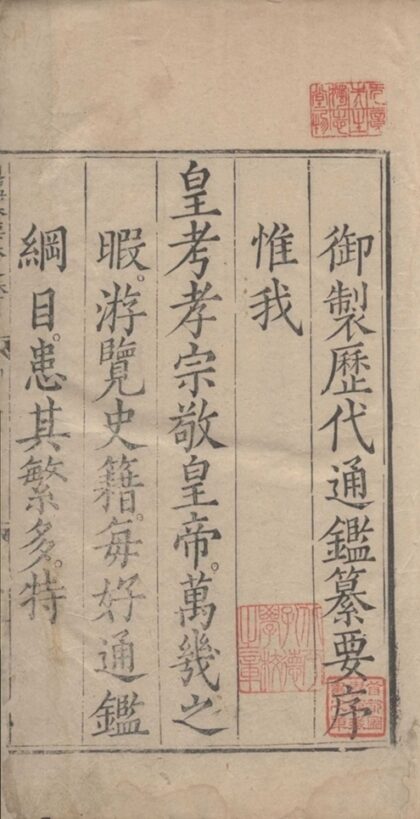 御製歷代通鑑纂要序
惟我
皇考孝宗敬皇帝。萬幾之
暇。游覽史籍。每好通鑑
綱目。患其繁多。特